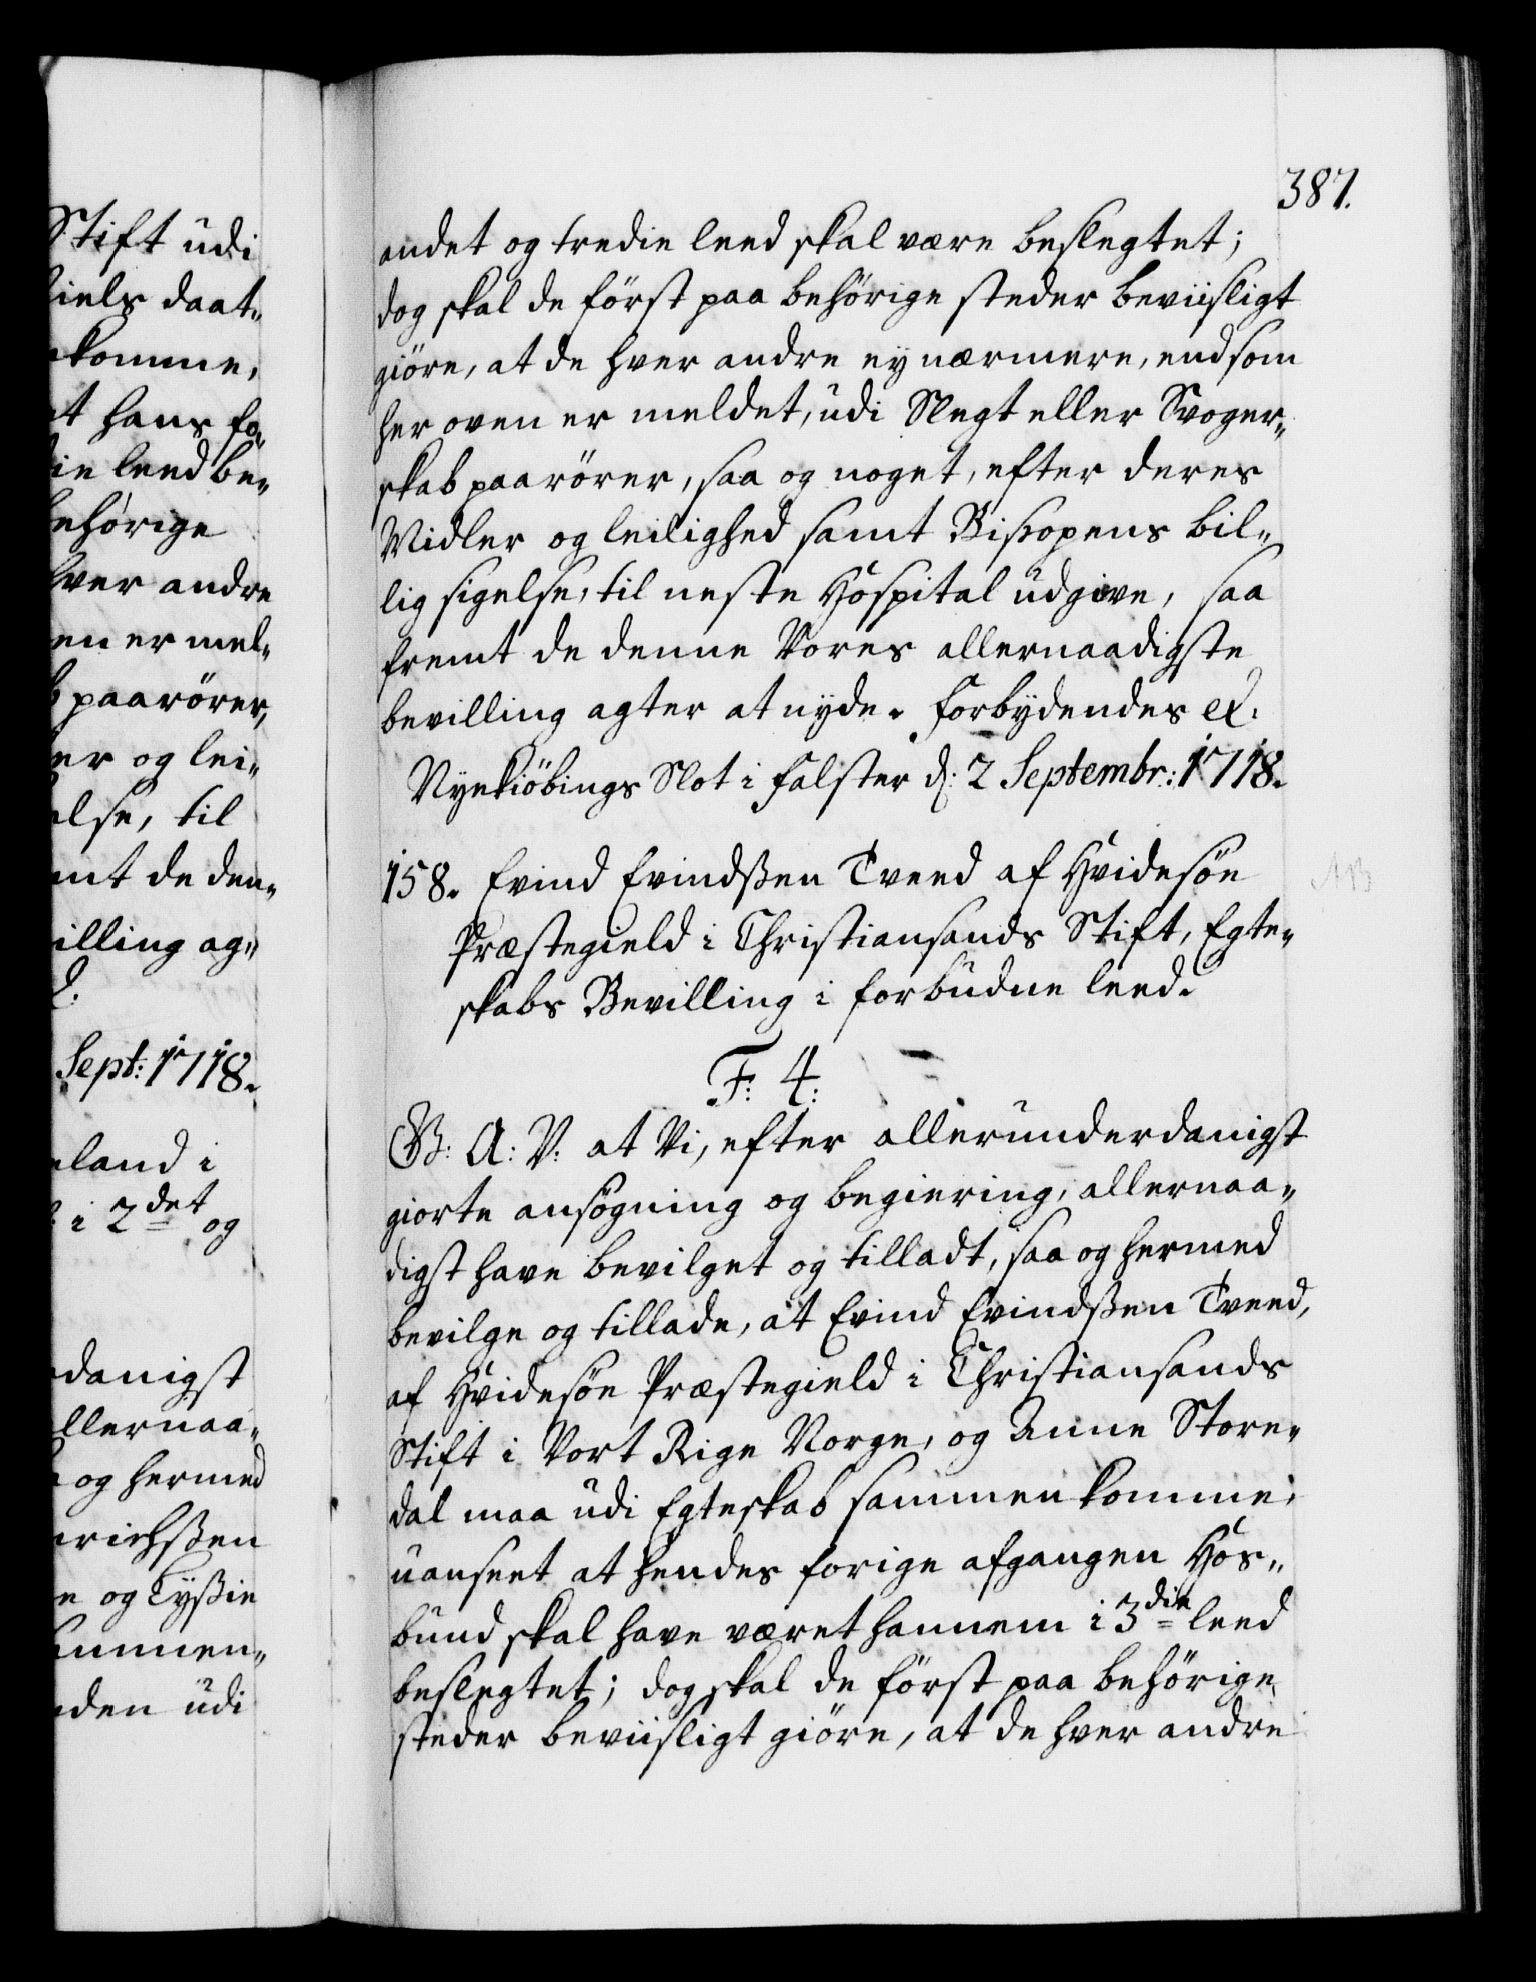 Stift udi
iels daat-
komme,
t hans fo-
ie leed be-
ehörige
hver andre
en er mel-
b paarörer,
er og lei-
else, til
mt de den-
illing ag-
Sept: 1718.
land i
i 2det og
danigst
llernaa-
og hermed
richssen
e og Tyssie
ammen-
den udi
387.
andet og tredie leed skal være beslegtet;
dog skal de först paa behörige steder beviisligt
giöre, at de hver andre ey nærmere, end som
her oven er meldet, udi Slegt eller Svoger-
skab paarörer, saa og noget, efter deres
Midler og leilighed samt Bispens bil-
lig sigelse, til neste Hospital udgive, saa
fremt de denne Vores allernaadigste
bevilling agter at nyde. Forbydendes etc:
Nyekiöbings Slot i Falster d: 2 Septembr: 1718.
158. Evind Evindssen Tveed af Hvidesöe
Præstegield i Christiansands Stift, Egte-
skabs Bevilling i forbudne leed.
F: 4:
G: A: V: at Vi, efter allerunderdanigst
giorte ansögning og begiering, allernaa-
digst have bevilget og tilladt, saa og hermed
bevilge og tillade, at Evind Evindssen Tveed,
af Hvidesöe Præstegield i Christiansands
Stift i Vort Rige Norge, og Anne Store-
dal maa udi Egteskab sammenkomme,
uanseet at hendes forige afgangen Hos-
bund skal have været hannem i 3die leed
beslegtet; dog skal de först paa behörige
steder beviisligt giöre, at de hver andre